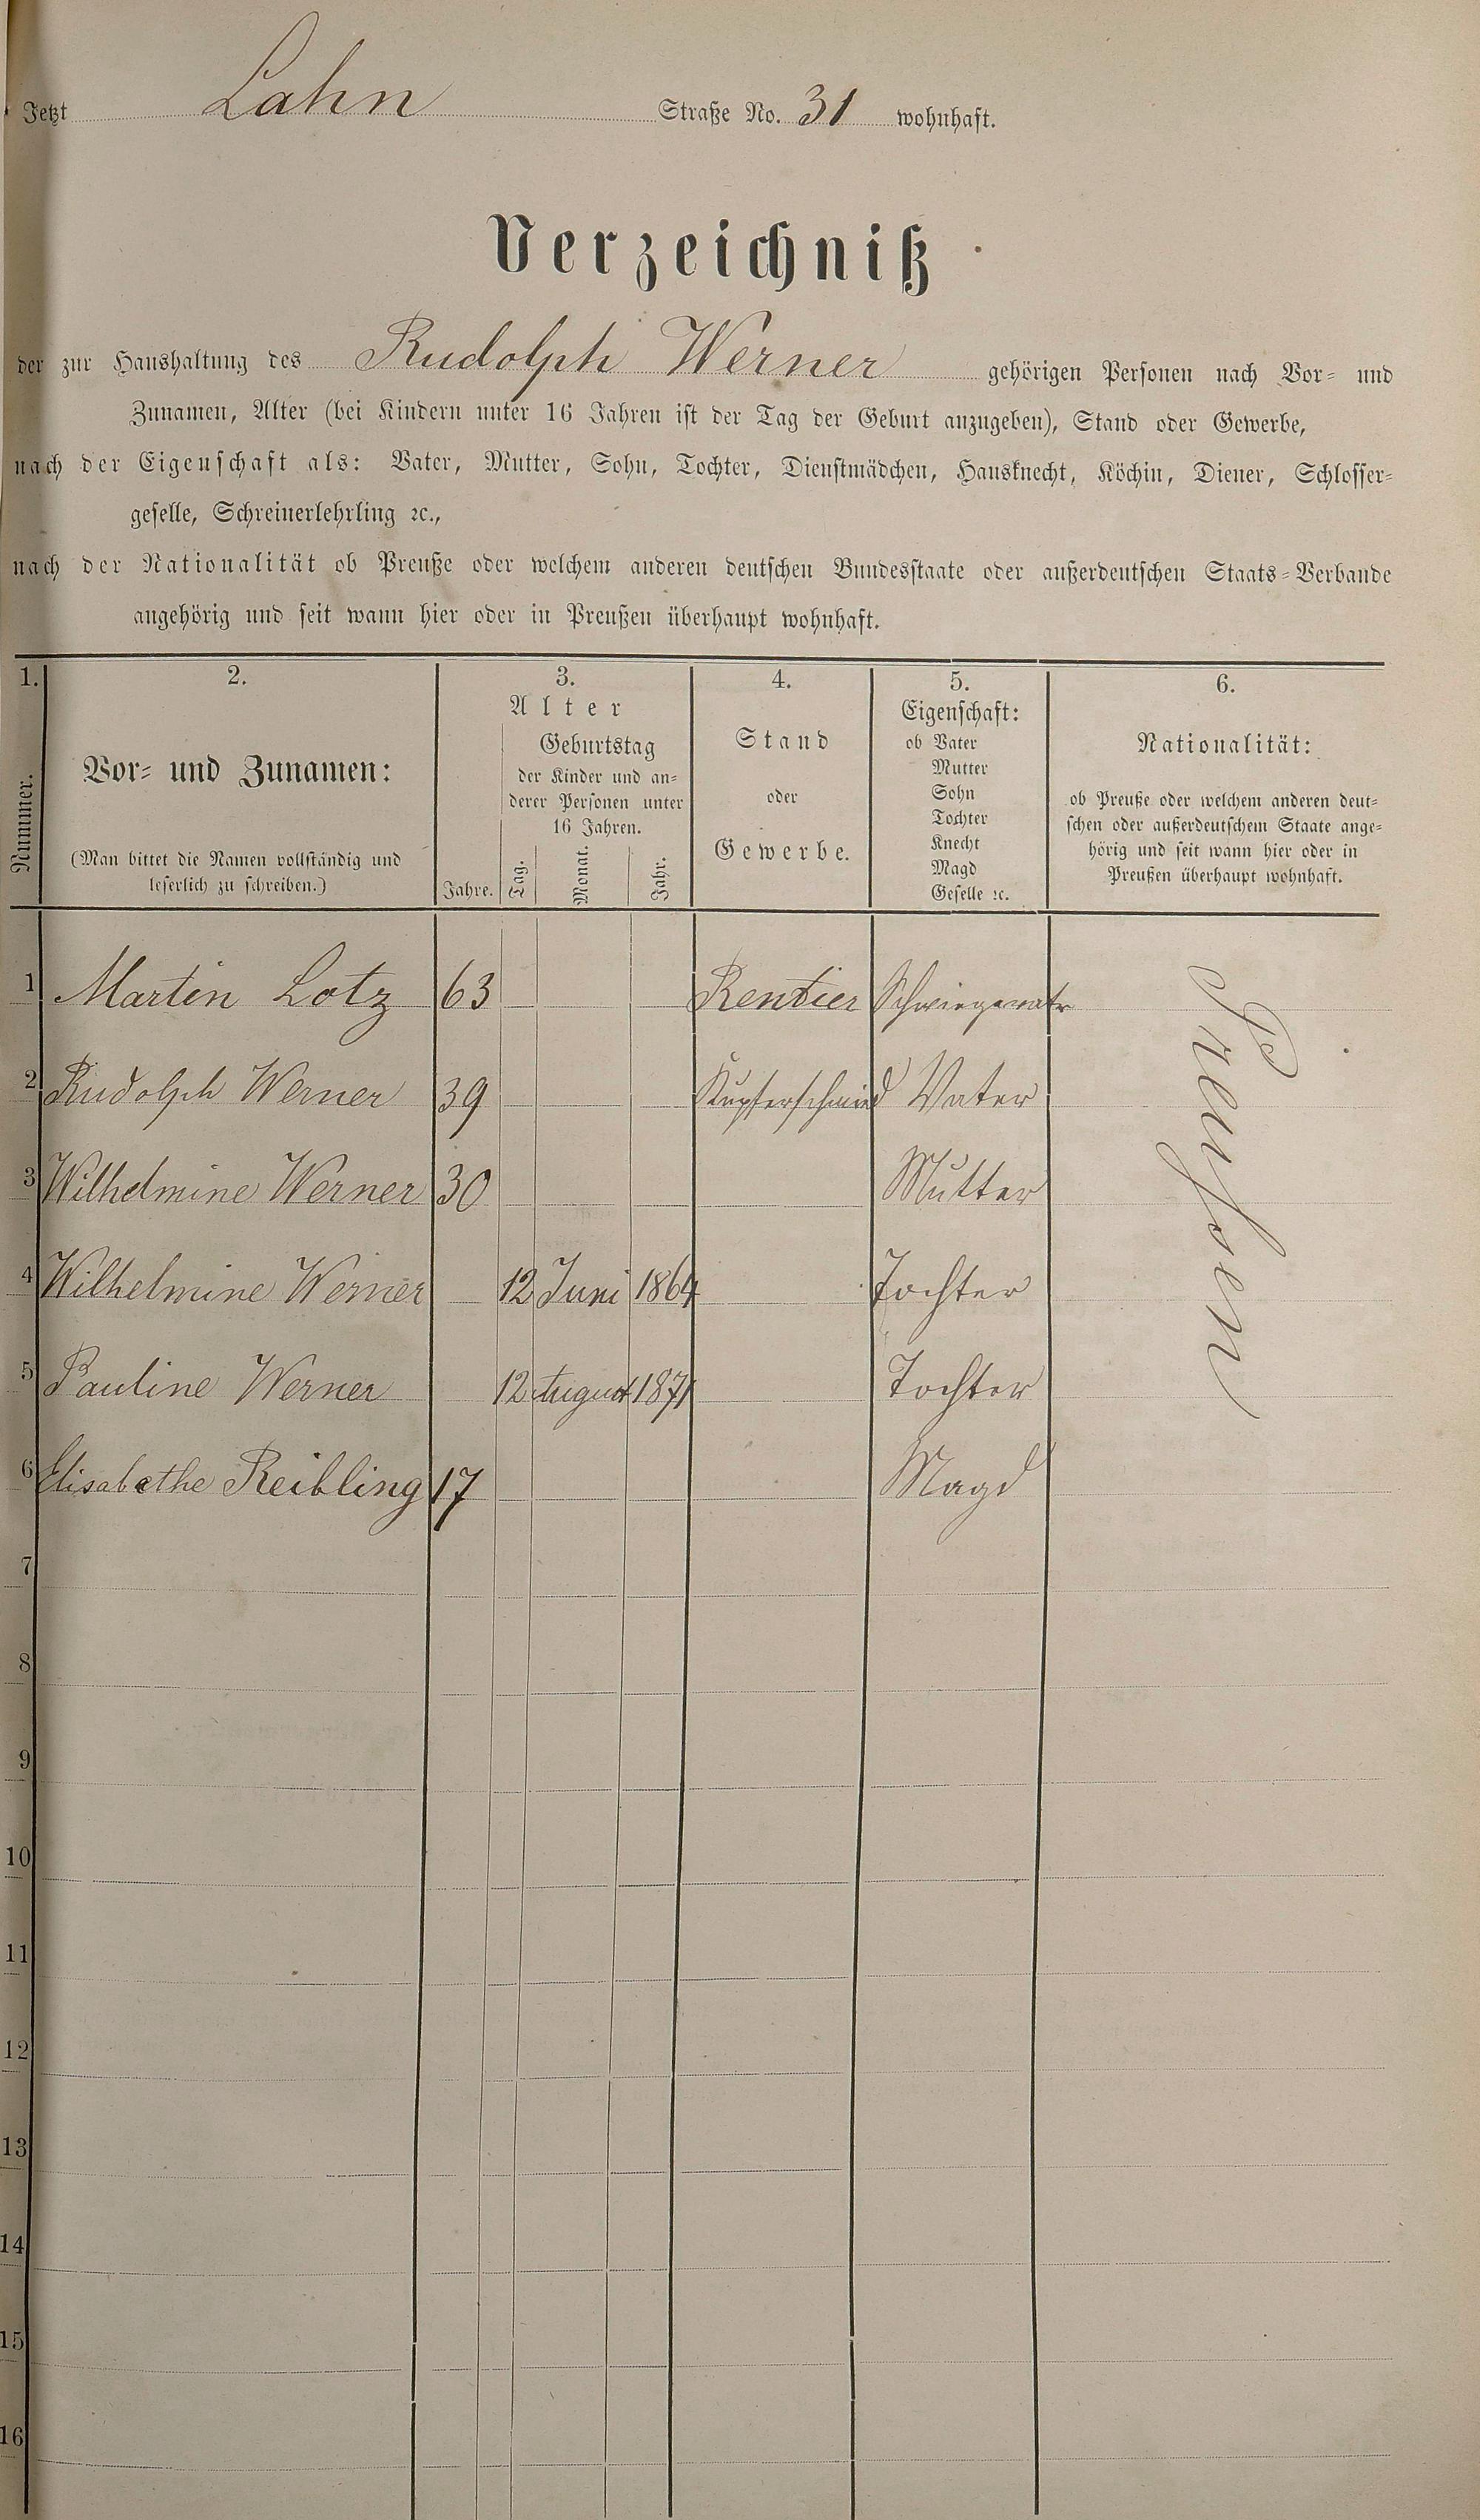 Jetzt Lahn Straße No. 31 wohnhaft.
Verzeichniß
der zur Haushaltung des Rudolph Werner gehörigen Personen nach Vor- und
Zunamen, Alter (bei Kindern unter 16 Jahren ist der Tag der Geburt anzugeben), Stand oder Gewerbe,
nach der Eigenschaft als: Vater, Mutter, Sohn, Tochter, Dienstmädchen, Hausknecht, Köchin, Diener, Schlosser-
geselle, Schreinerlehrling ꝛc.,
nach der Nationalität ob Preuße oder welchem anderen deutschen Bundesstaate oder außerdeutschen Staats-Verbande
angehörig und seit wann hier oder in Preußen überhaupt wohnhaft.
1.
Nummer.
2.
Vor- und Zunamen:
(Man bittet die Namen vollständig und
leserlich zu schreiben.)
3.
Alter
Jahre.
Geburtstag
der Kinder und an-
derer Personen unter
16 Jahren.
Tag. Monat. Jahr.
4.
Stand
oder
Gewerbe.
5.
Eigenschaft:
ob Vater
Mutter
Sohn
Tochter
Knecht
Magd
Geselle ꝛc.
6.
Nationalität:
ob Preuße oder welchem anderen deut-
schen oder außerdeutschem Staate ange-
hörig und seit wann hier oder in
Preußen überhaupt wohnhaft.
1 Martin Lotz 63 Rentier Schwiegervatr
2 Rudolph Werner 39 Kupferschmied Vater
3 Wilhelmine Werner 30 Mutter
4 Wilhelmine Werner 12 Juni 1864 Tochter
5 Pauline Werner 12 August 1871 Tochter
6 Elisabethe Reibling 17 Magd
Preußen
7
8
9
10
11
12
13
14
15
16